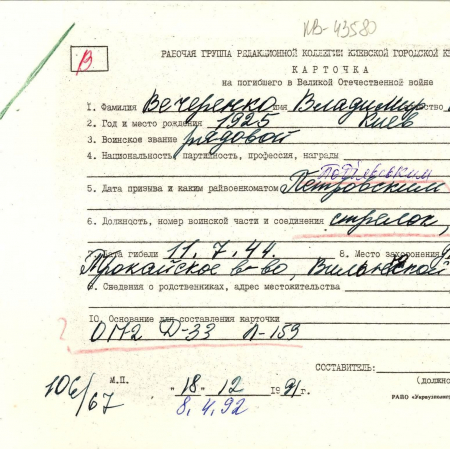 КВ-43580
В
РАБОЧАЯ ГРУППА РЕДАКЦИОННОЙ КОЛЛЕГИИ КИЕВСКОЙ ГОРОДСКОЙ
КАРТОЧКА
на погибшего в Великой Отечественной войне
1. Фамилия Вечеренко Владимир
2. Год и место рождения 1925 Киев
3. Воинское звание рядовой
4. Национальность, партийность, профессия, награды
5. Дата призыва и каким райвоенкоматом Петровским
6. Должность, номер воинской части и соединения стрелок,
7. Дата гибели 11.7.44. 8. Место захоронения
Трокайское в-во, Вильнюсской
9. Сведения о родственниках, адрес местожительства
10. Основание для составления карточки
ОП-2 Д-33 Л-159
СОСТАВИТЕЛЬ:
106/67 М.П. "18" 12 1991г.
8.4.92